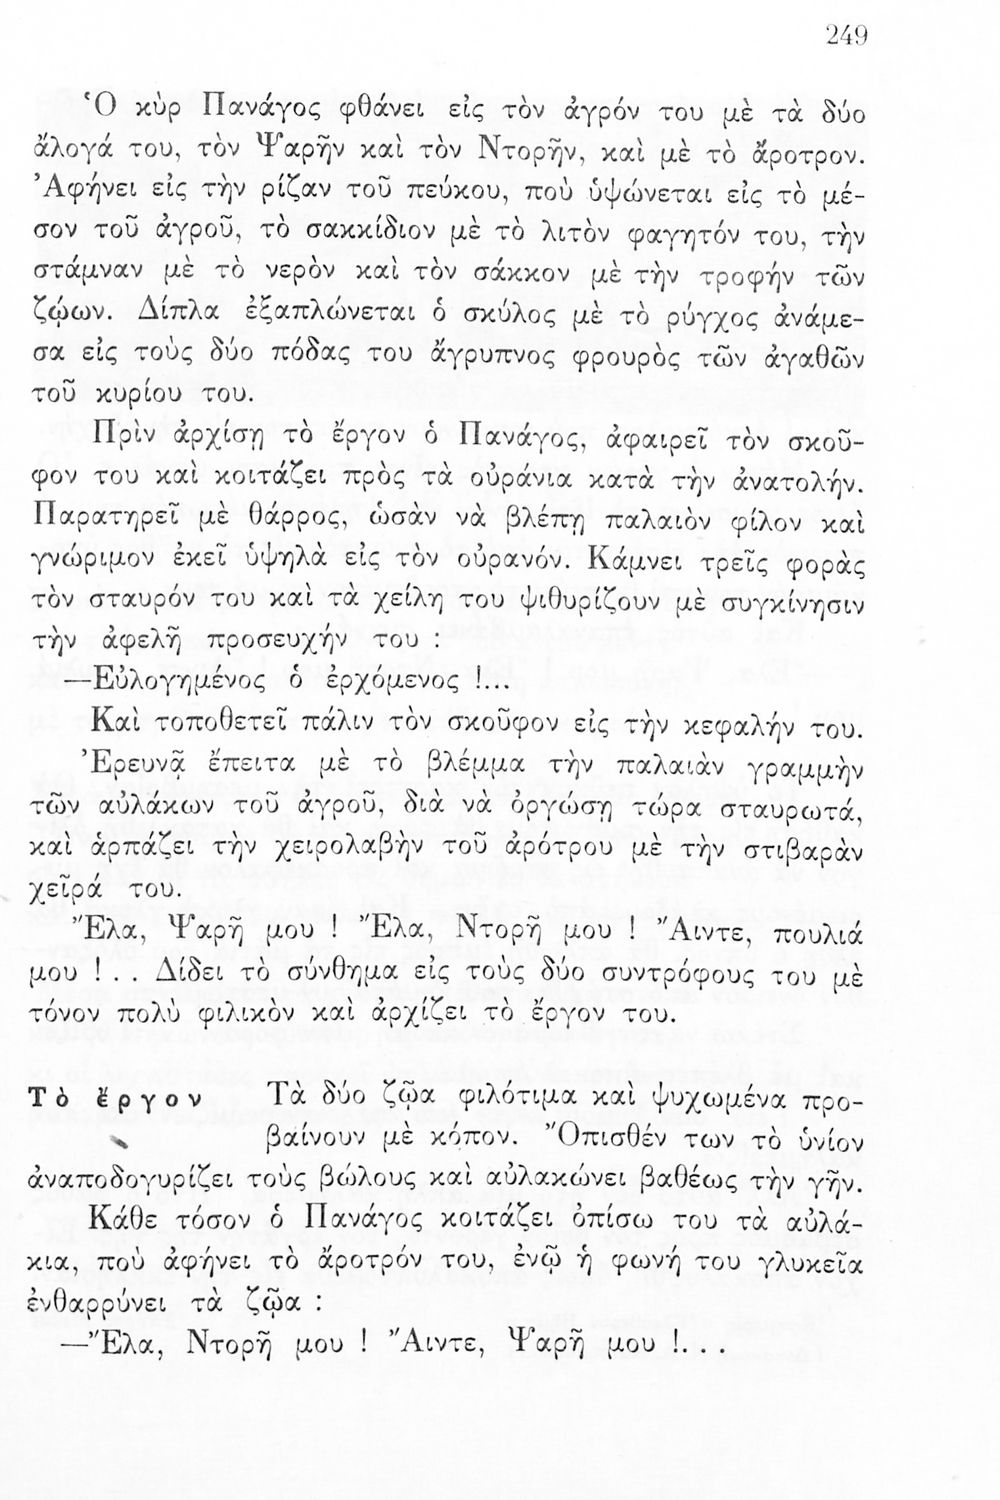 249
Ὁ κὺρ Πανάγος φθάνει εἰς τὸν ἀγρόν του μὲ τὰ δύο
ἄλογά του, τὸν Ψαρῆν καὶ τὸν Ντορῆν, καὶ μὲ τὸ ἄροτρον.
Ἀφήνει εἰς τὴν ρίζαν τοῦ πεύκου, ποὺ ὑψώνεται εἰς τὸ μέ-
σον τοῦ ἀγροῦ, τὸ σακκίδιον μὲ τὸ λιτὸν φαγητόν του, τὴν
στάμναν μὲ τὸ νερὸν καὶ τὸν σάκκον μὲ τὴν τροφήν τῶν
ζῴων. Δίπλα ἐξαπλώνεται ὁ σκύλος μὲ τὸ ρύγχος ἀνάμε-
σα εἰς τοὺς δύο πόδας του ἄγρυπνος φρουρὸς τῶν ἀγαθῶν
τοῦ κυρίου του.
Πρὶν ἀρχίσῃ τὸ ἔργον ὁ Πανάγος, ἀφαιρεῖ τὸν σκοῦ-
φον του καὶ κοιτάζει πρὸς τὰ οὐράνια κατὰ τὴν ἀνατολήν.
Παρατηρεῖ μὲ θάρρος, ὡσὰν νὰ βλέπῃ παλαιὸν φίλον καὶ
γνώριμον ἐκεῖ ὑψηλὰ εἰς τὸν οὐρανόν. Κάμνει τρεῖς φορὰς
τὸν σταυρόν του καὶ τὰ χείλη του ψιθυρίζουν μὲ συγκίνησιν
τὴν ἀφελῆ προσευχήν του :
—Εὐλογημένος ὁ ἐρχόμενος !...
Καὶ τοποθετεῖ πάλιν τὸν σκοῦφον εἰς τὴν κεφαλήν του.
Ἐρευνᾷ ἔπειτα μὲ τὸ βλέμμα τὴν παλαιὰν γραμμὴν
τῶν αὐλάκων τοῦ ἀγροῦ, διὰ νὰ ὀργώσῃ τώρα σταυρωτά,
καὶ ἁρπάζει τὴν χειρολαβὴν τοῦ ἀρότρου μὲ τὴν στιβαρὰν
χεῖρά του.
Ἔλα, Ψαρῆ μου ! Ἔλα, Ντορῆ μου ! Ἄιντε, πουλιά
μου !... Δίδει τὸ σύνθημα εἰς τοὺς δύο συντρόφους του μὲ
τόνον πολὺ φιλικὸν καὶ ἀρχίζει τὸ ἔργον του.
Τὸ ἔργον Τὰ δύο ζῶα φιλότιμα καὶ ψυχωμένα προ-
βαίνουν μὲ κόπον. Ὄπισθέν των τὸ ὑνίον
ἀναποδογυρίζει τοὺς βώλους καὶ αὐλακώνει βαθέως τὴν γῆν.
Κάθε τόσον ὁ Πανάγος κοιτάζει ὀπίσω του τὰ αὐλά-
κια, ποὺ ἀφήνει τὸ ἄροτρόν του, ἐνῷ ἡ φωνή του γλυκεῖα
ἐνθαρρύνει τὰ ζῷα :
—Ἔλα, Ντορῆ μου ! Ἄιντε, Ψαρῆ μου !...